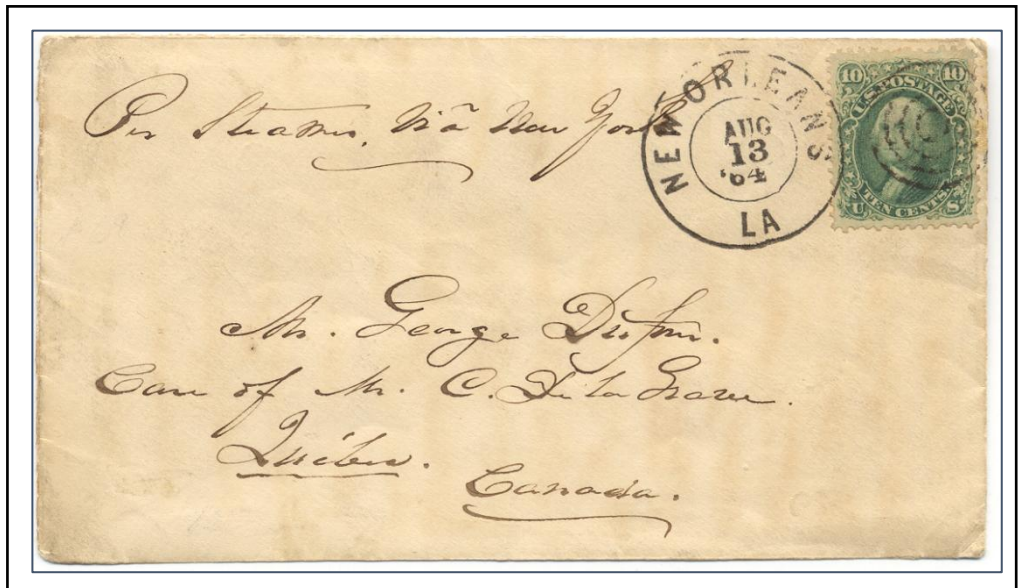 Per Steamer, Via New York
NEW ORLEANS
AUG
13
'64
LA
10 10
U.S. POSTAGE
TEN CENTS
U S
Mr. George
Care of Mr. C.
Québec.
Canada.